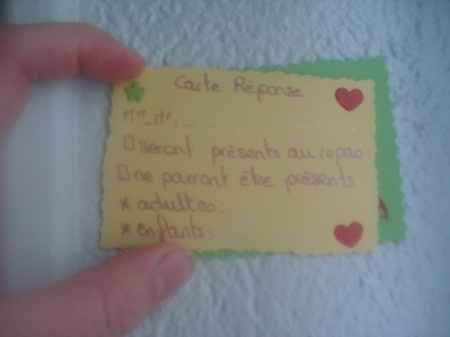 Carte Réponse
M
seront présents au repas
ne pourront être présents
* adultes
* enfants